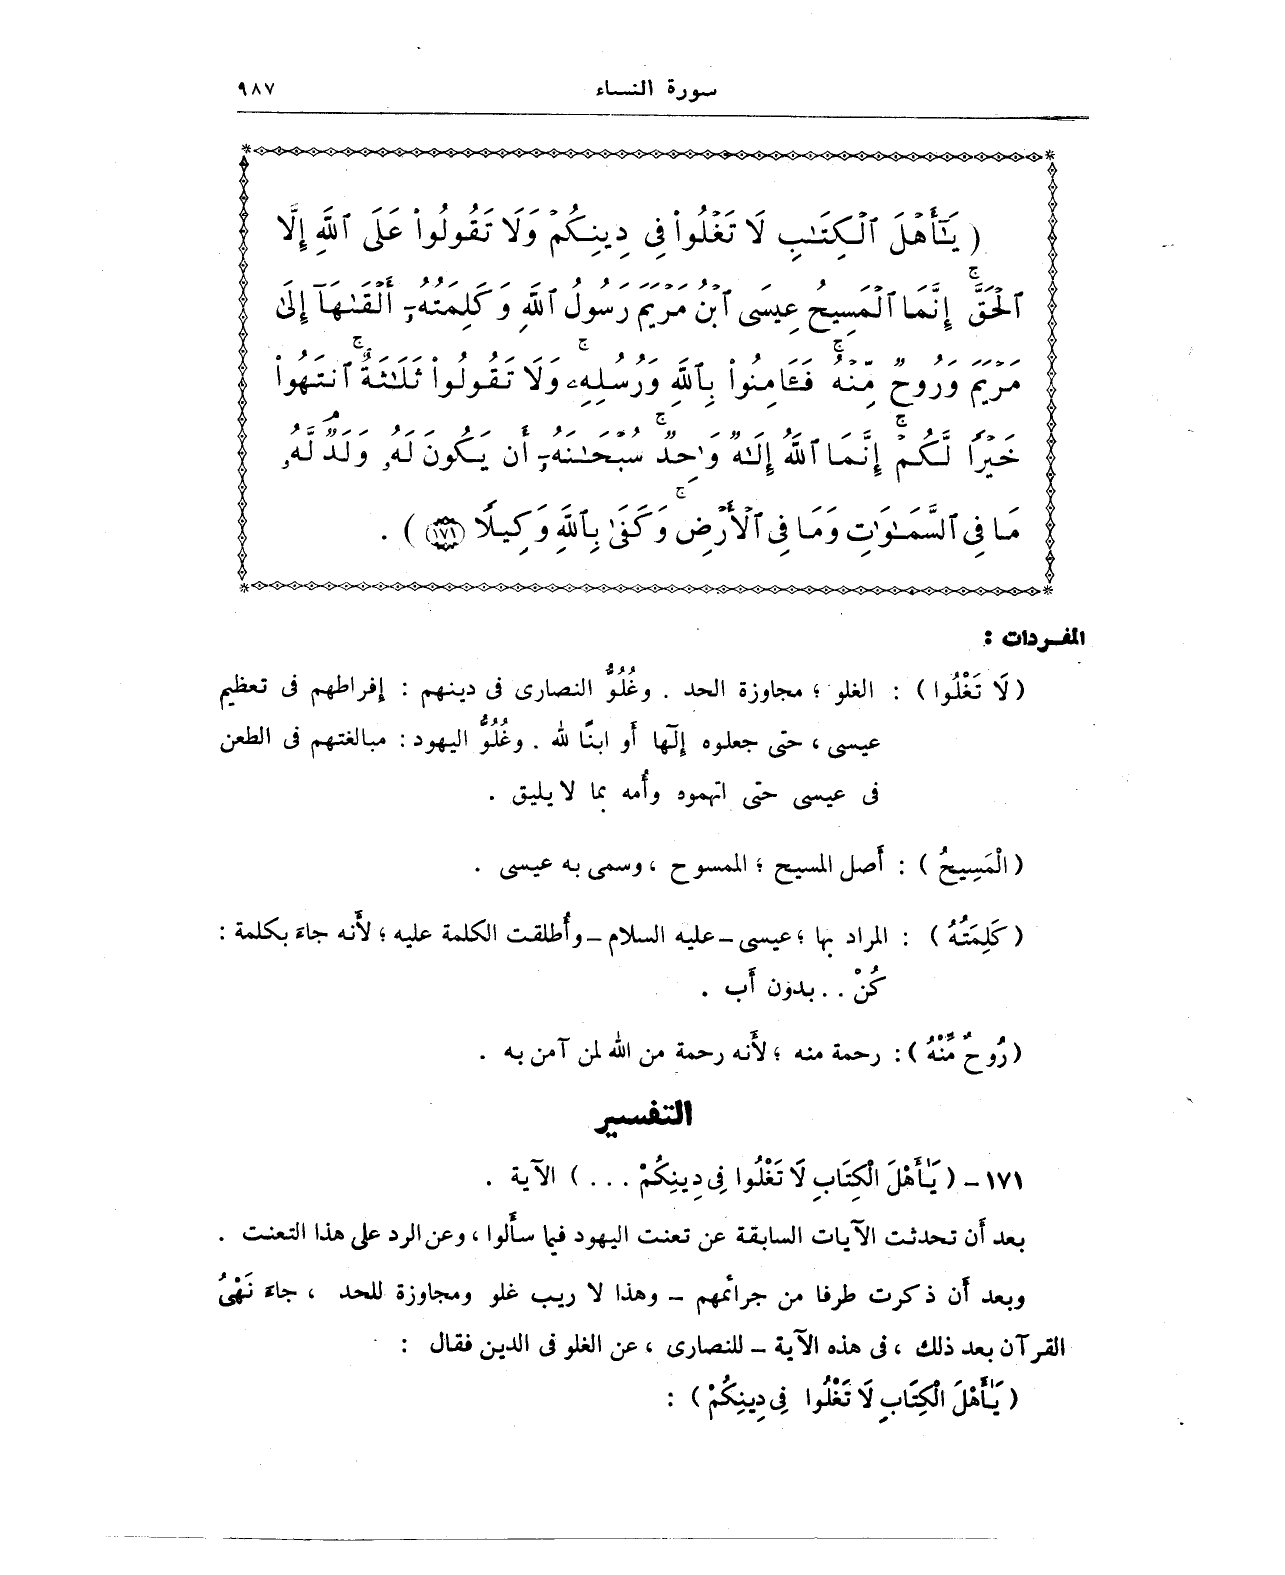 سورة النساء
٩٨٧
( يَٰٓأَهْلَ ٱلْكِتَٰبِ لَا تَغْلُوا۟ فِى دِينِكُمْ وَلَا تَقُولُوا۟ عَلَى ٱللَّهِ إِلَّا
ٱلْحَقَّ ۚ إِنَّمَا ٱلْمَسِيحُ عِيسَى ٱبْنُ مَرْيَمَ رَسُولُ ٱللَّهِ وَكَلِمَتُهُۥٓ أَلْقَىٰهَآ إِلَىٰ
مَرْيَمَ وَرُوحٌ مِّنْهُ ۖ فَـَٔامِنُوا۟ بِٱللَّهِ وَرُسُلِهِۦ ۖ وَلَا تَقُولُوا۟ ثَلَٰثَةٌ ۚ ٱنتَهُوا۟
خَيْرًا لَّكُمْ ۚ إِنَّمَا ٱللَّهُ إِلَٰهٌ وَٰحِدٌ ۖ سُبْحَٰنَهُۥٓ أَن يَكُونَ لَهُۥ وَلَدٌ ۘ لَّهُۥ
مَا فِى ٱلسَّمَٰوَٰتِ وَمَا فِى ٱلْأَرْضِ ۗ وَكَفَىٰ بِٱللَّهِ وَكِيلًا (١٧١) ) .
المفردات :
( لَا تَغْلُوا ) : الغلو ؛ مجاوزة الحد . وغُلُوُّ النصارى فى دينهم : إفراطهم فى تعظيم
عيسى ، حتى جعلوه إلٰهًا أو ابنًا لله . وغُلُوُّ اليهود : مبالغتهم فى الطعن
فى عيسى حتى اتهموه وأُمه بما لا يليق .
( الْمَسِيحُ ) : أَصل المسيح ؛ الممسوح ، وسمى به عيسى .
( كَلِمَتُهُ ) : المراد بها ؛ عيسى - عليه السلام - وأُطلقت الكلمة عليه ؛ لأَنه جاءَ بكلمة :
كُنْ . . بدون أَب .
( رُوحٌ مِّنْهُ ) : رحمة منه ؛ لأَنه رحمة من الله لمن آمن به .
التفسير
١٧١ - ( يَٰأَهْلَ الْكِتَابِ لَا تَغْلُوا فِى دِينِكُمْ . . . ) الآية .
بعد أَن تحدثت الآيات السابقة عن تعنت اليهود فيما سأَلوا ، وعن الرد على هذا التعنت .
وبعد أَن ذكرت طرفا من جرائمهم - وهذا لا ريب غلو ومجاوزة للحد ، جاءَ نَهْىُ
القرآن بعد ذلك ، فى هذه الآية - للنصارى ، عن الغلو فى الدين فقال :
( يَٰأَهْلَ الْكِتَابِ لَا تَغْلُوا فِى دِينِكُمْ ) :